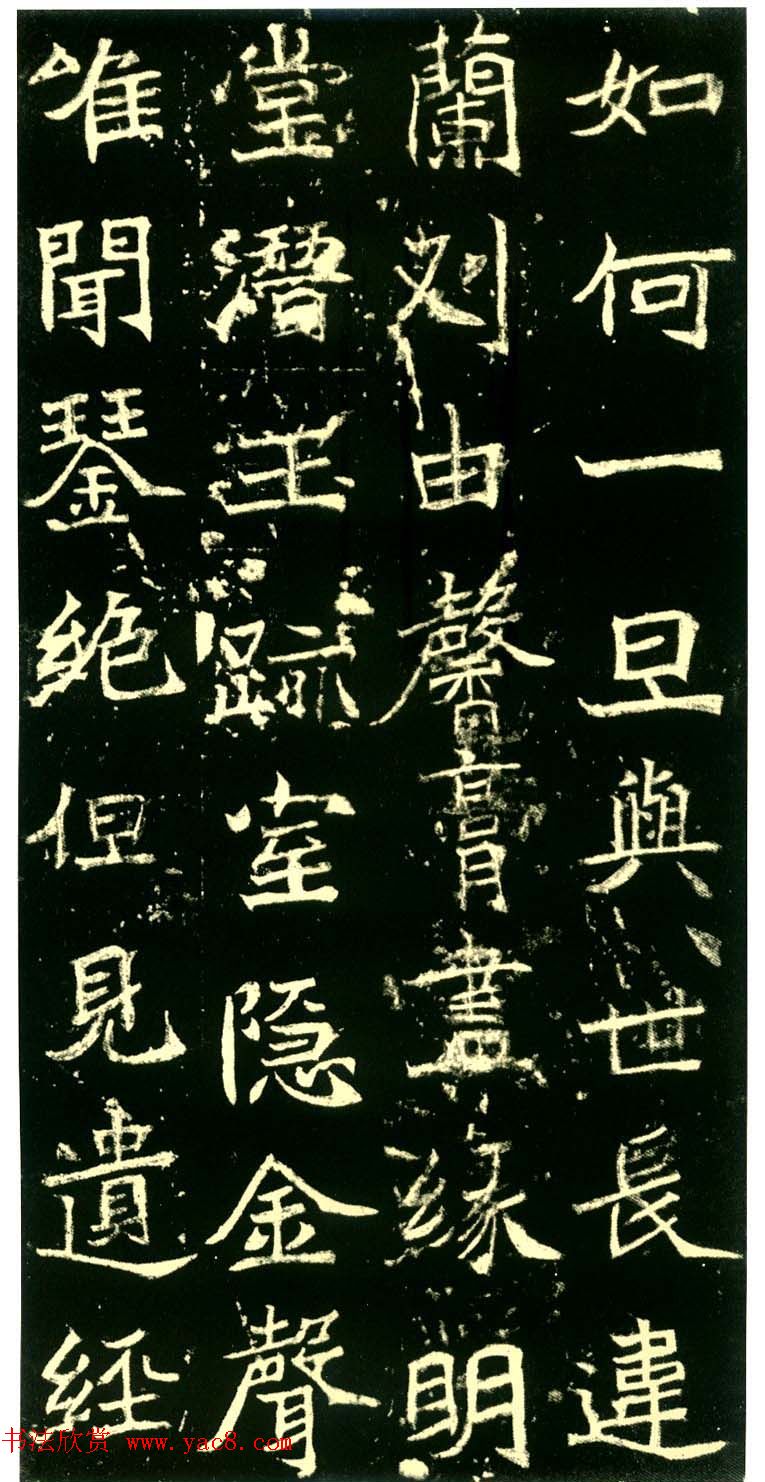 如何一旦與世長違
蘭刈由馨膏盡緣明
堂潛玉跡室隱金聲
唯聞琴絕但見遺經
书法欣赏 www.yac8.com